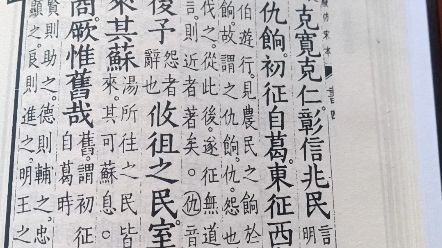 克寬克仁。彰信兆民
言
明
仇餉。初征自葛。東征西
伯遊行。見農民之餉於
餉故謂之仇餉。仇。怨也
伐之。從此後。遂征無道
則近者著矣。仇音
後予怨者
辭也攸徂之民。室
來其蘇湯所往之民皆
來。其可蘇息。
商厥惟舊哉舊。謂初征
自葛時
賢則助之。德則輔之。忠
顯之。良則進之。明王之